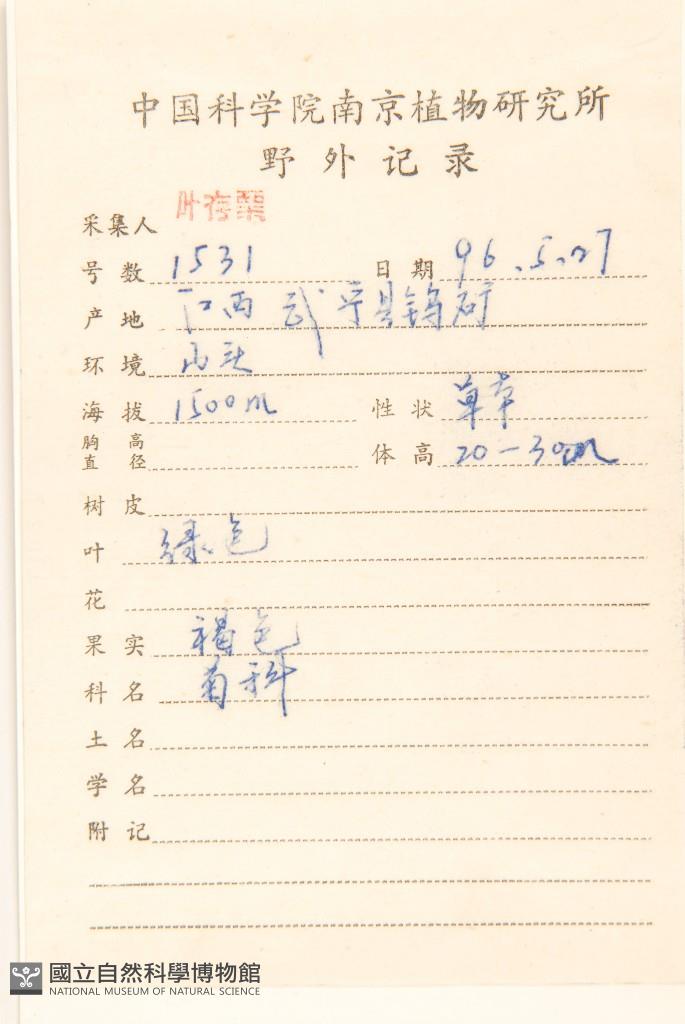 中国科学院南京植物研究所
野外记录
采集人 叶存粟
号数 1531 日期 96.5.27
产地 江西武宁县钨矿
环境 山头
海拔 1500m 性状 草本
胸高直径 体高 20-30cm
树皮
叶 绿色
花
果实 褐色
科名 菊科
土名
学名
附记
國立自然科學博物館
NATIONAL MUSEUM OF NATURAL SCIENCE